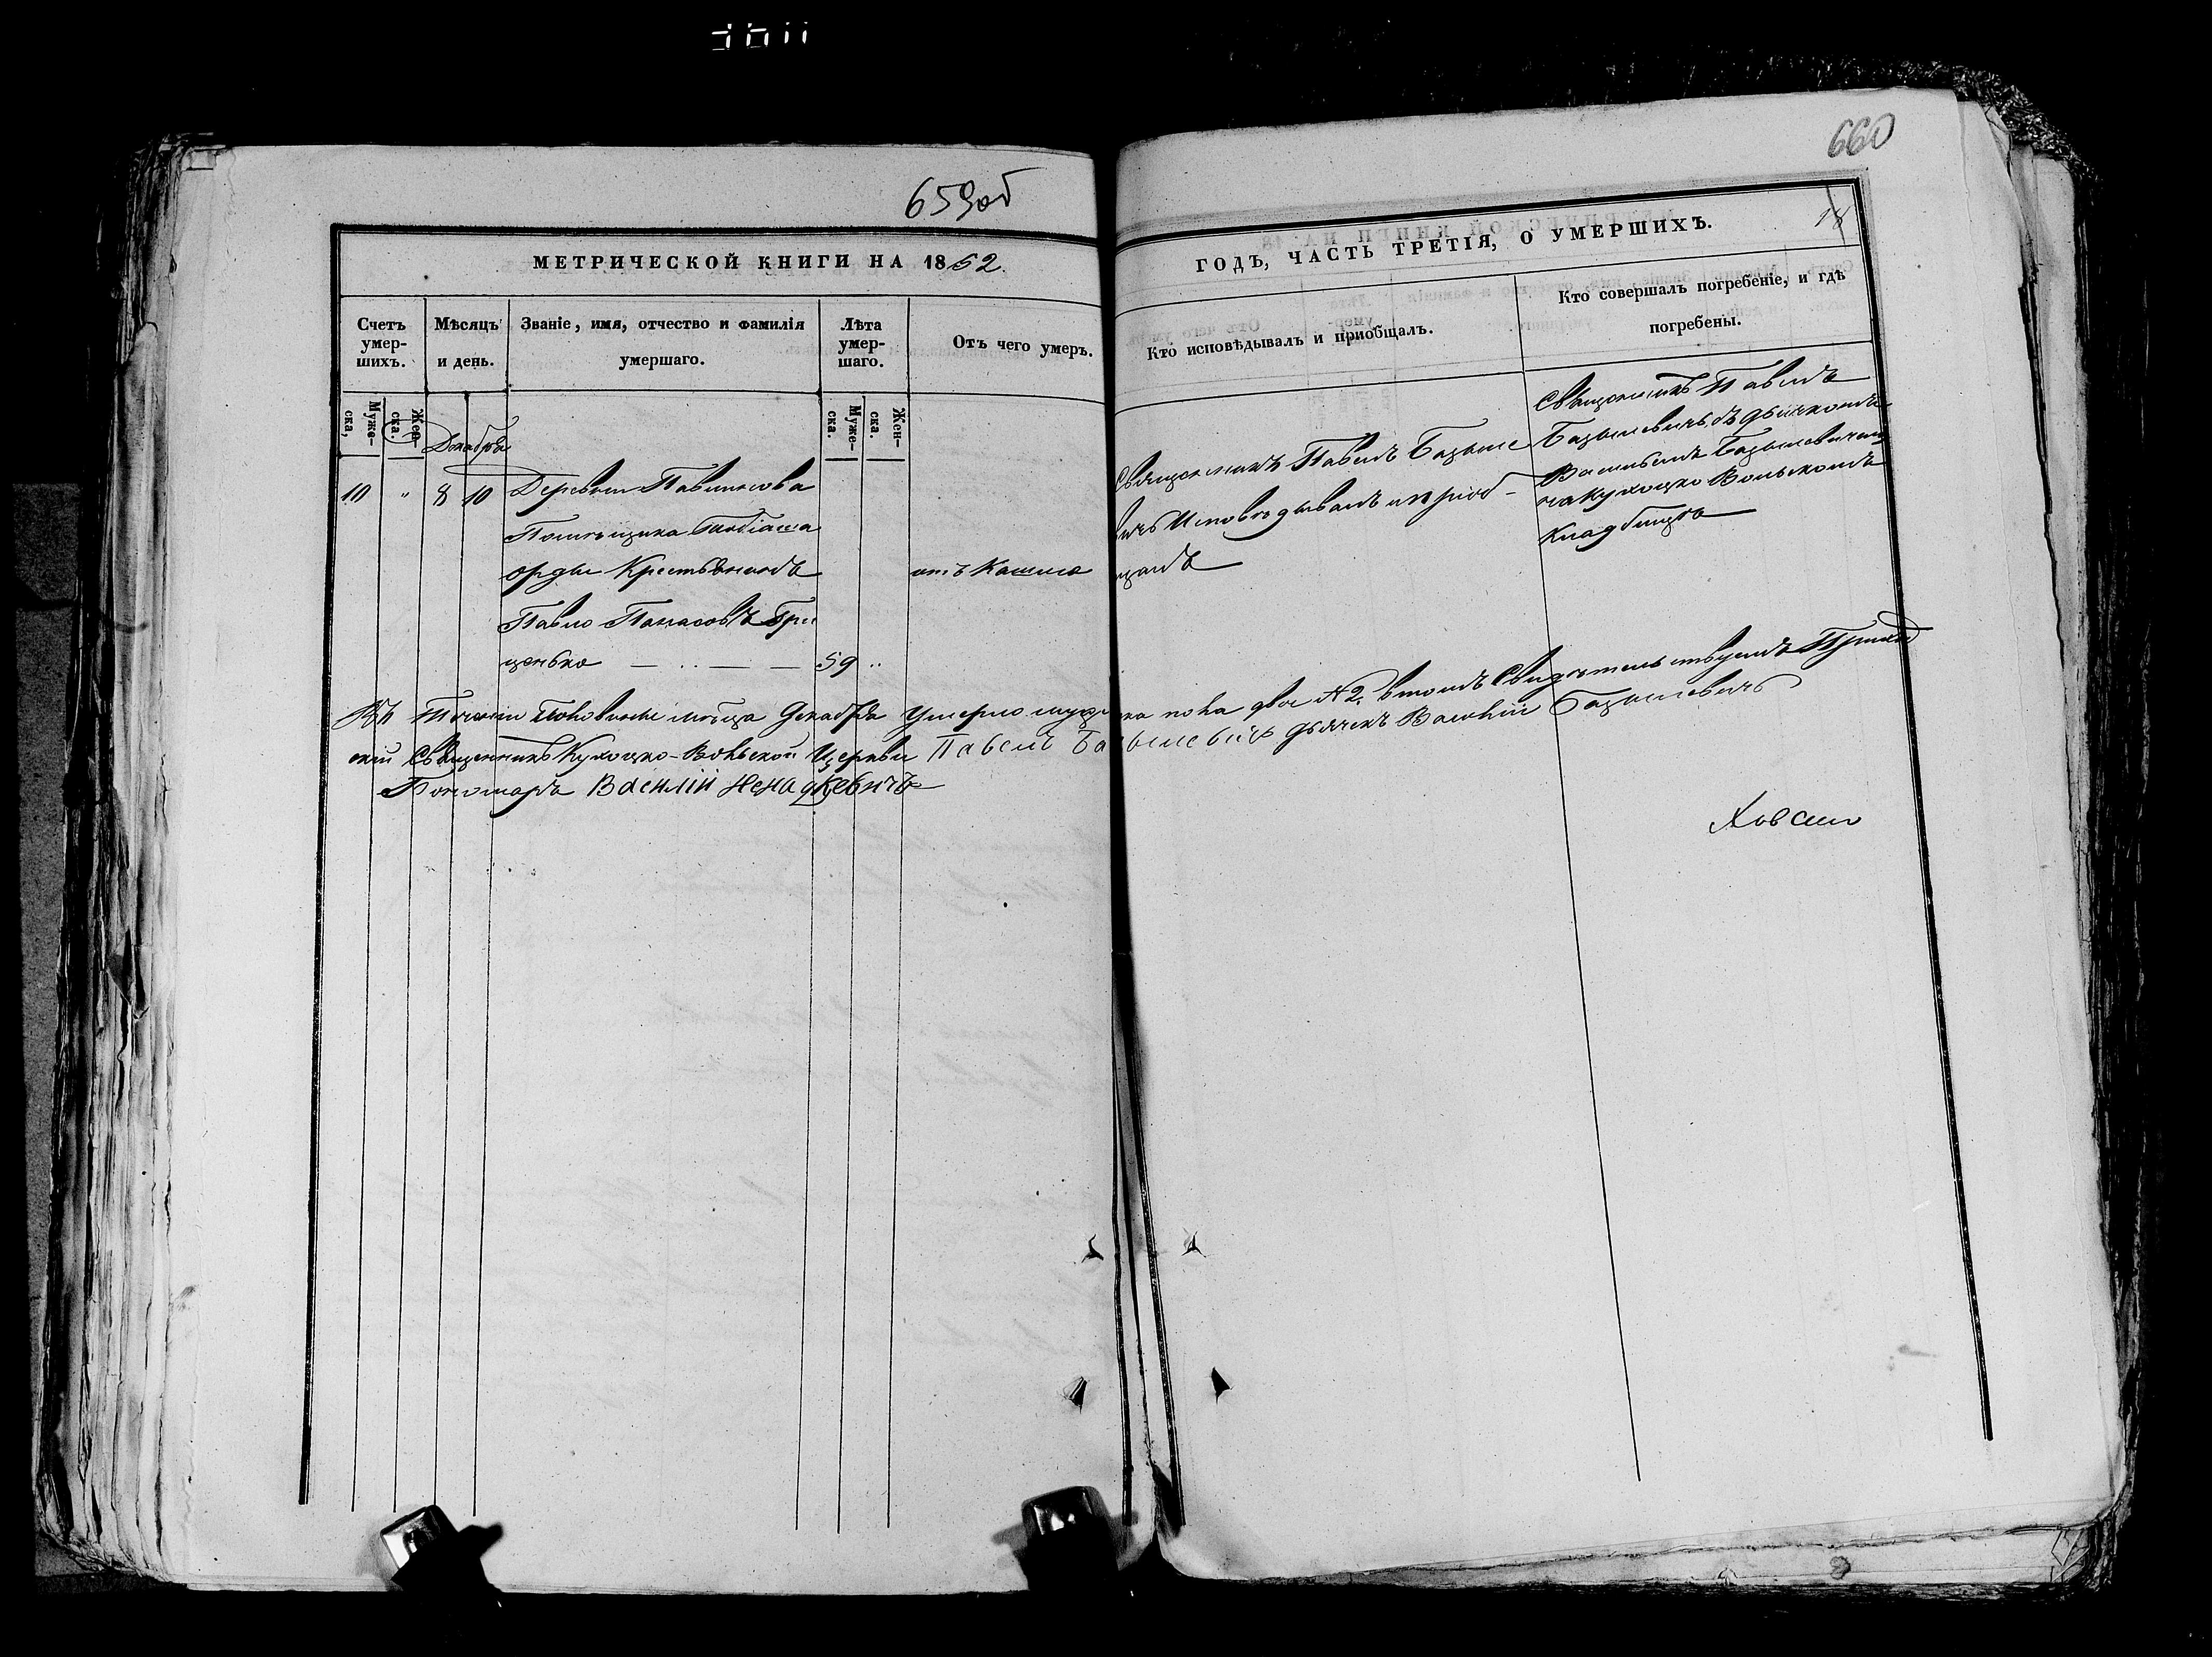 659об
660
МЕТРИЧЕСКОЙ КНИГИ НА 1852.
ГОДЪ, ЧАСТЬ ТРЕТІЯ, О УМЕРШИХЪ.
18
Счетъ умер-шихъ.
Мѣсяцъ и день.
Званіе, имя, отчество и фамилія умершаго.
Лѣта умер-шаго.
Отъ чего умеръ.
Кто исповѣдывалъ и пріобщалъ.
Кто совершалъ погребеніе, и гдѣ погребены.
Муже-ска,
Жен-ска.
Муже-ска.
Жен-ска.
Декабря
10 " 8 10 Деревни
Помѣщика
орды Крестьянинъ
Павло Панасовъ Гри
ценько 59 "
отъ Кашлю
Священникъ Павелъ Базыле
вичъ Исповѣдывалъ и пріоб-
щалъ
Священникъ Павелъ
Базылевичь съ дьячкомъ
Васильемъ Базылевичемъ
на Кухоцко Вольскомъ
Кладбищѣ
Половины мѣсца Декабря Умерло мужеска пола двое №2, въ томъ Свидѣтельствуемъ Приход
скій Священникъ Кухоцко-Вольской Церкви Павелъ Базылевичъ дьячекъ Василій Базылевичь
Пономарь Василій Ненадкевичъ